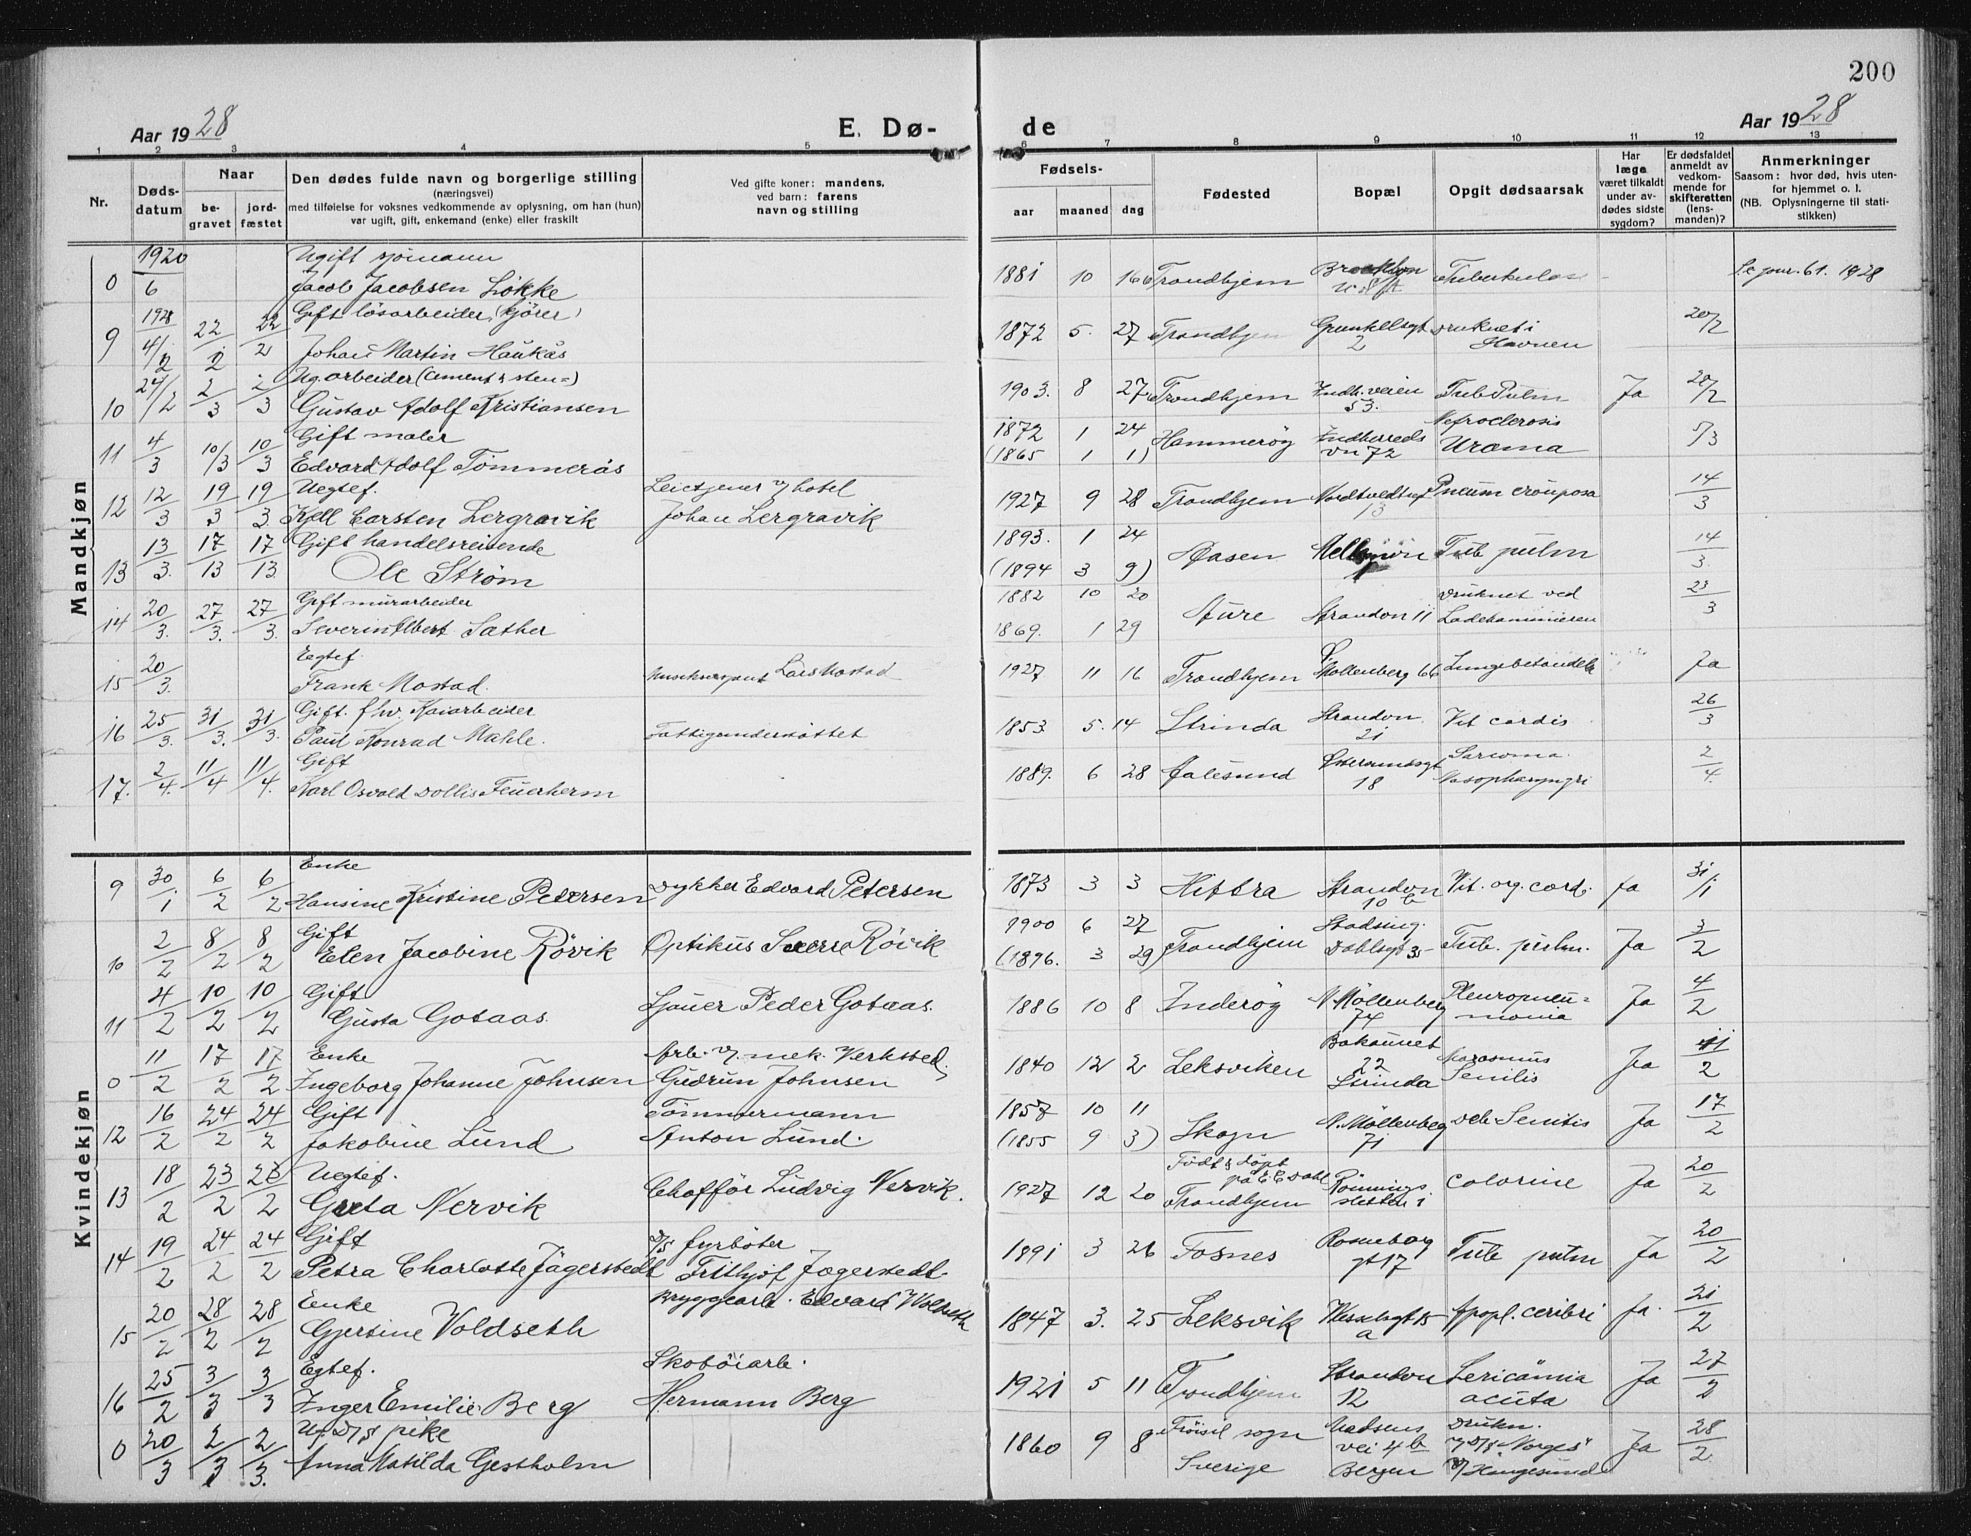 200
Aar 1928
E. Dø-
de
Aar 1928
1 2 3 4 5 6 7 8 9 10 11 12 13
Nr.
Døds-
datum
Naar
be-
gravet
jord-
fæstet
Den dødes fulde navn og borgerlige stilling
(næringsvei)
med tilføielse for voksnes vedkommende av oplysning, om han (hun)
var ugift, gift, enkemand (enke) eller fraskilt
Ved gifte koner: mandens,
ved barn: farens
navn og stilling
Fødsels-
aar
maaned
dag
Fødested
Bopæl
Opgit dødsaarsak
Har
læge
været tilkaldt
under av-
dødes sidste
sygdom?
Er dødsfaldet
anmeldt av
vedkom-
mende for
skifteretten
(lens-
manden)?
Anmerkninger
Saasom: hvor død, hvis uten-
for hjemmet o. l.
(NB. Oplysningerne til stati-
stikken)
Mandkjøn
1920 Ugift sjömann
0 6 Jacob Jacobsen Løkke 1881 10 16 Trondhjem Tuberkulos 61. 1928
1928 Gift løsarbeider (kjører)
9 4/2 22/2 22/2 Johan Martin Haukås 1872 5. 27 Trondhjem 2 Druknet i Havnen 20/2
24/2 2/3 2/3 Ug. arbeider (cement & sten=)
10 Gustav Adolf Kristiansen 1903. 8 27 Trondhjem Indh. veien 53. Tub. Pulm Ja 28/2
Gift maler
11 4/3 10/3 10/3 Edvard Adolf Tømmerås 1872 1 24 (1865 1 1) Hammerøy Indherreds vn 72 Uræmia 5/3
Uegtef.
12 12/3 19/3 19/3 Kjell Carsten Lergravik Johan Lergravik 1927 9 28 Trondhjem 13 Pneum crouposa 14/3
Gift handelsreisende
13 13/3. 17/13 17/13 Ole Strøm 1893. 1 24 (1894 3 9) Aasen Tub pulm 14/3.
Gift murarbeider
14 20/3. 27/3. 27/3. Severin Albert Sæther 1882 10 20 1869. 1 29 Aure Strandvn 11 Druknet ved Ladehammeren 23/3
Egtef.
15 20/3. Frank Mostad. Lars Mostad 1927 11 16 Trondhjem Møllenberg 66 Lungebetændels Ja
Gift. fhv. Kaiarbeider
16 25/3. 31/3. 31/3. Paul Konrad Mahle. Fattigunderstøttet 1853 5. 14 Strinda Strandvn. 21 Vit cordis 26/3
Gift
17. 2/4. 11/4 11/4. Karl Osvald Dollis Feuerherm 1889. 6 28 Aalesund 18 Sarcoma. 2/4.
Kvindekjøn
Enke
9 30/1 6/2 6/2 Hansine Kristine Petersen Dykker Edvard Petersen 1873 3 3 Hittra Strandvn 10 b Vit. org. cord. Ja 31./1
Gift
10 2/2 8/2 8/2 Elen Jacobine Røvik Optikus Sverre Røvik 1900 6 27 (1896. 3 29) Trondhjem Stadsing. Dahlsgt 35 Tub. pulm. Ja 3/2
Gift
11 4/2 10/2 10/2 Gusta Gotaas. Gjauer Peder Gotaas. 1886 10 8 Inderøy N. Møllenberg 74 Pleuropneu=monia Ja 4/2
Enke Arb. v. mek. Verksted.
0 11/2 17/2 17/2 Ingeborg Johanne Johnsen Gudrun Johnsen 1840 12 2 Leksviken Bakaunet 22 Strinda Marasmus Senilis Ja 11/2
Gift Tømmermann
12 16/2 24/2 24/2 Jakobine Lund Anton Lund. 1857 10 11 (1855 9 3) Skogn N. Møllenberg 71 Deb. Senilis Ja 17/2
Uegtef.
13 18/2 23/2 23/2 Greta Nervik Choffør Ludvig Nervik. 1927 12 20 Født & døpt på E C Dahl Trondhjem Rønnings sletten 1 Ja 20/2
Gift D/S fyrbøter
14 19/2 24/2 24/2 Petra Charlotte Jägerstedt Frithjof Jagerstedt. 1891 3 26 Fosnes Rosenborg gt 17 Tub pulm Ja 20/2
Enke Bryggearb. Edvard Voldseth
15 20/2 28/2 28/2 Gjertine Voldseth 1847 3. 25 Leksvik Wesselsgt 15 a Apopl. ceribri Ja. 21/2
Egtef. Skotøiarb.
16 25/2 3/3 3/3 Inger Emilie Berg Hermann Berg 1921 5 11 Trondhjem Strandvn 12 acuta Ja 27/2
Ug. D/S pike
0 20/3 2/3 2/3. Anna Matilda Gestholm 1860 9 8 sogn Sverige Madsens vei 4b Bergen Drukn. D/S "Norges" v/ Haugesund Ja 28/2